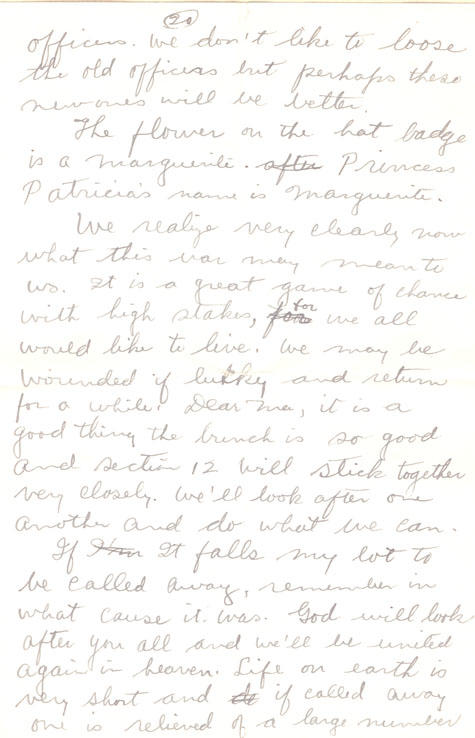 20
officers. We don't like to loose
the old officers but perhaps these
new ones will be better.
The flower on the hat badge
is a marguerite. after Princess
Patricia's name is Marguerite.
We realize very clearly now
what this war may mean to
us. It is a great game of chance
with high stakes, for for we all
would like to live. We may be
wounded if lucky and return
for a while. Dear Ma, it is a
good thing the bunch is so good
and section 12 will stick together
very closely. We'll look after one
another and do what we can.
If It falls my lot to
be called away, remember in
what cause it was. God will look
after you all and we'll be united
again in heaven. Life on earth is
very short and if called away
one is relieved of a large number